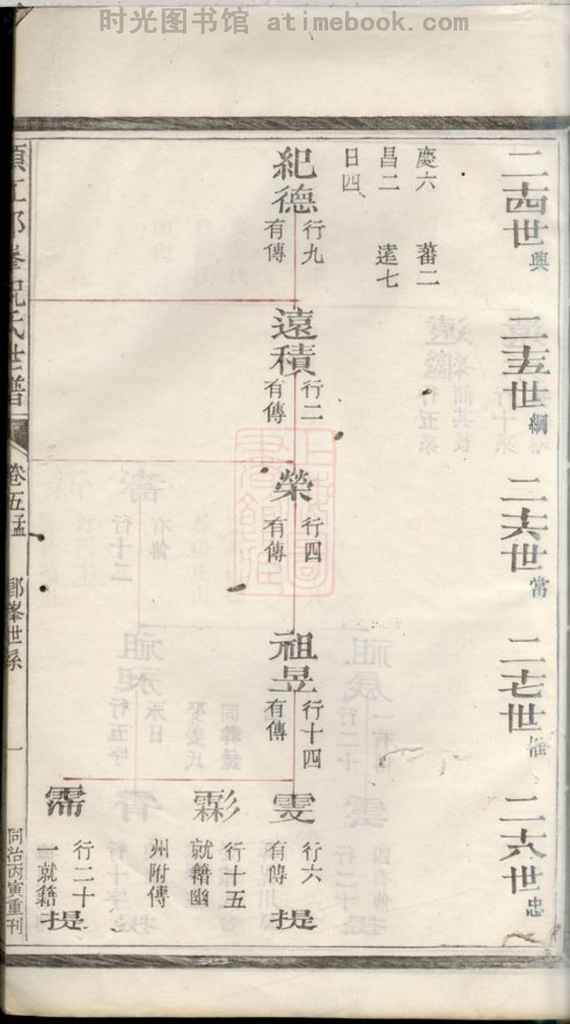 时光图书馆 atimebook.com
二十四世 興
二十五世 綱
二十六世 常
二十七世
二十八世 忠
慶六 蕃二
昌二 遠七
日四
紀德 行九 有傳
遠積 行二 有傳
榮 行四 有傳
祖昱 行十四 有傳
雯 行六 有傳 提
行十五 就籍幽州附傳
霈 行二十一 就籍 提
氏世譜
卷五 郎峯世系 一
同治丙寅重刊